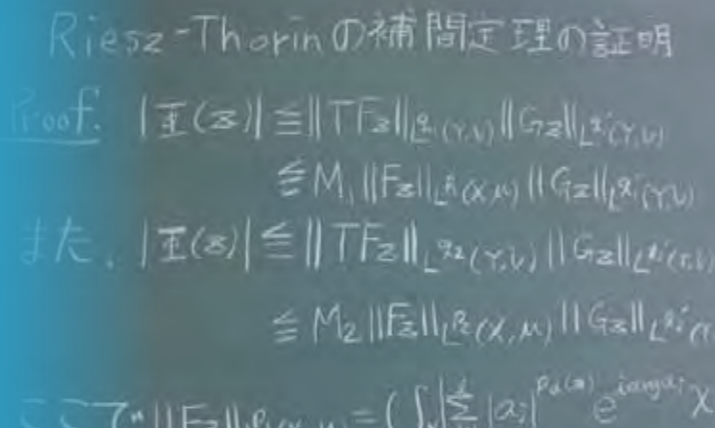 Riesz-Thorinの補間定理の証明
Proof. |Φ(z)| ≦ ||TF_z||_{L^{q_1}(Y,ν)} ||G_z||_{L^{q_1'}(Y,ν)}
≦ M_1 ||F_z||_{L^{p_1}(X,μ)} ||G_z||_{L^{q_1'}(Y,ν)}
また, |Φ(z)| ≦ ||TF_z||_{L^{q_2}(Y,ν)} ||G_z||_{L^{q_2'}(Y,ν)}
≦ M_2 ||F_z||_{L^{p_2}(X,μ)} ||G_z||_{L^{q_2'}
ここで ||F_z||